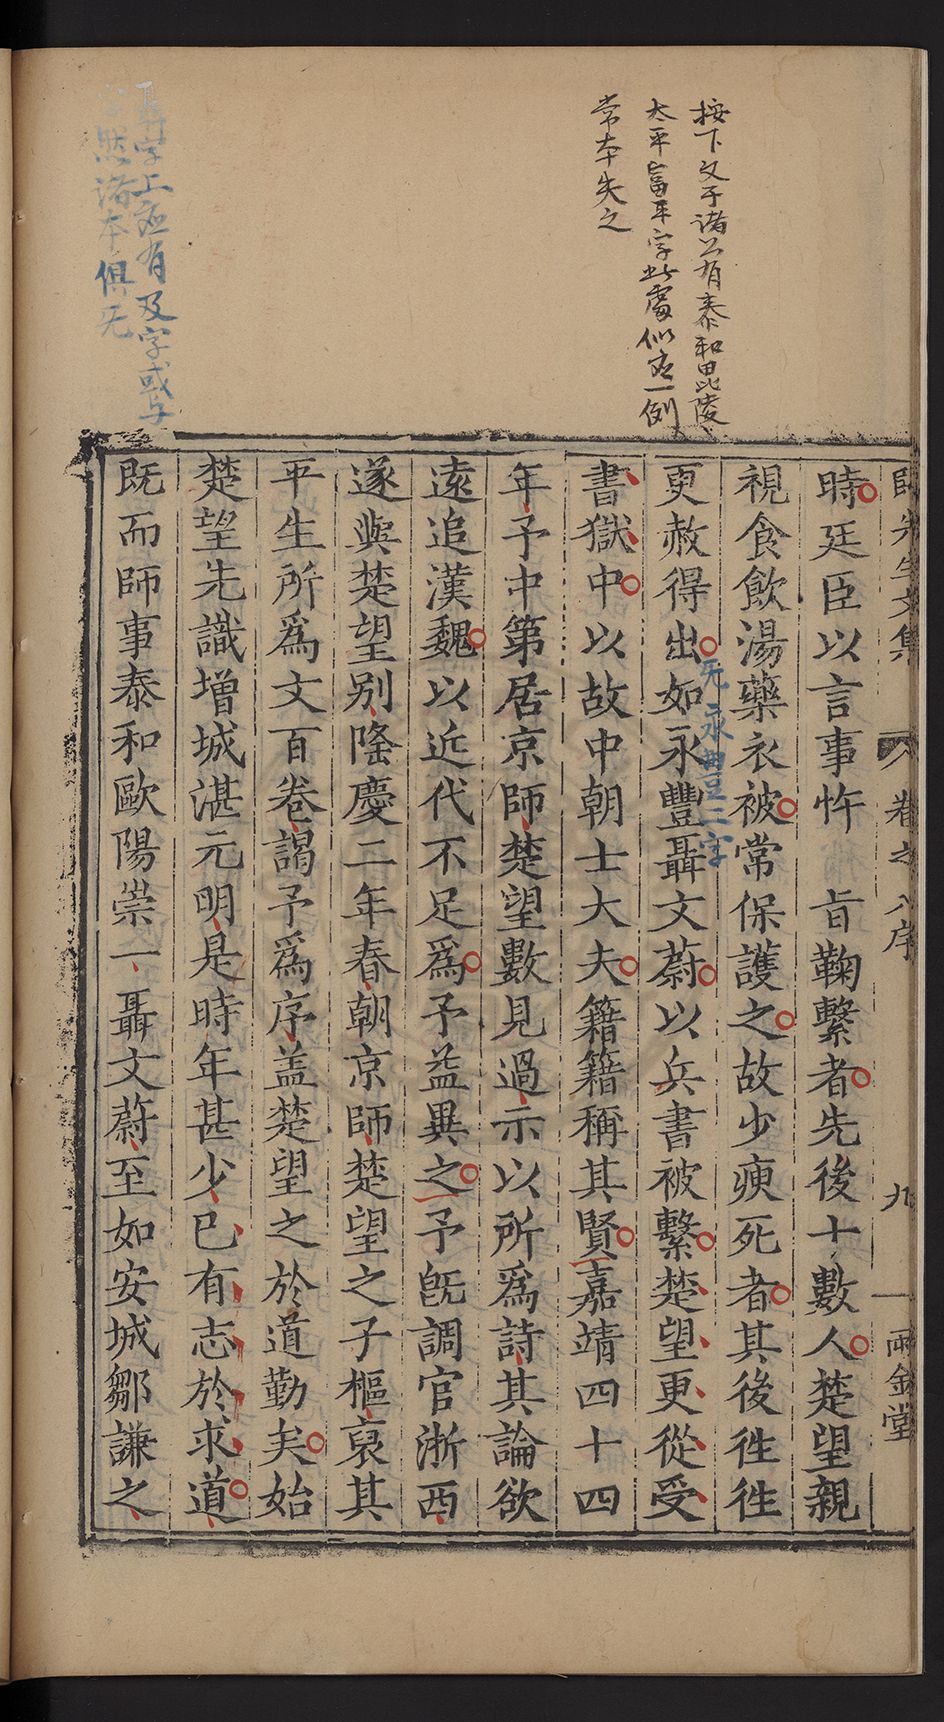 按下文于諸公有泰和毘陵
太平富平字此處似有一例
常本失之
聶字上应有及字或与
字然諸本俱旡
先生文集
卷之八序
九
兩金堂
時廷臣以言事忤 旨鞠繫者先後十數人楚望親
視食飲湯藥衣被常保護之故少瘐死者其後徃徃
更赦得出如永豐聶文蔚以兵書被繫楚望更從受
旡永豐二字
書獄中以故中朝士大夫籍籍稱其賢嘉靖四十四
年予中第居京師楚望數見過示以所爲詩其論欲
遠追漢魏以近代不足爲予益異之予旣調官浙西
遂與楚望別隆慶二年春朝京師楚望之子樞裒其
平生所爲文百卷謁予爲序盖楚望之於道勤矣始
楚望先識增城湛元明是時年甚少已有志於求道
既而師事泰和歐陽崇一聶文蔚至如安城鄒謙之